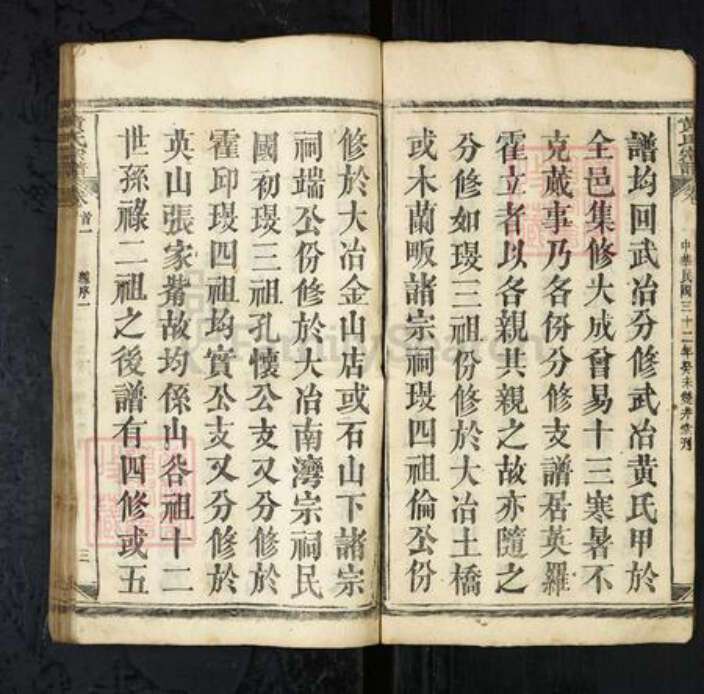 黃氏宗譜 卷
中華民國三十二年癸未
譜均回武冶分修武冶黃氏甲於
全邑集修大成曾易十三寒暑不
克蕆事乃各份分修支譜居英羅
霍立者以各親其親之故亦隨之
分修如瑅一三祖份修於大冶土橋
或木蘭畈諸宗祠瑅四祖倫公份
修於大冶金山店或石山下諸宗
祠端公份修於大冶南灣宗祠民
國初瑅三祖孔懷公支又分修於
霍邱瑅四祖均實公支又分修於
英山張家嘴故均係山谷祖十二
世孫祿二祖之後譜有四修或五
黃氏宗譜 卷首一 總序一 三
FamilySearch